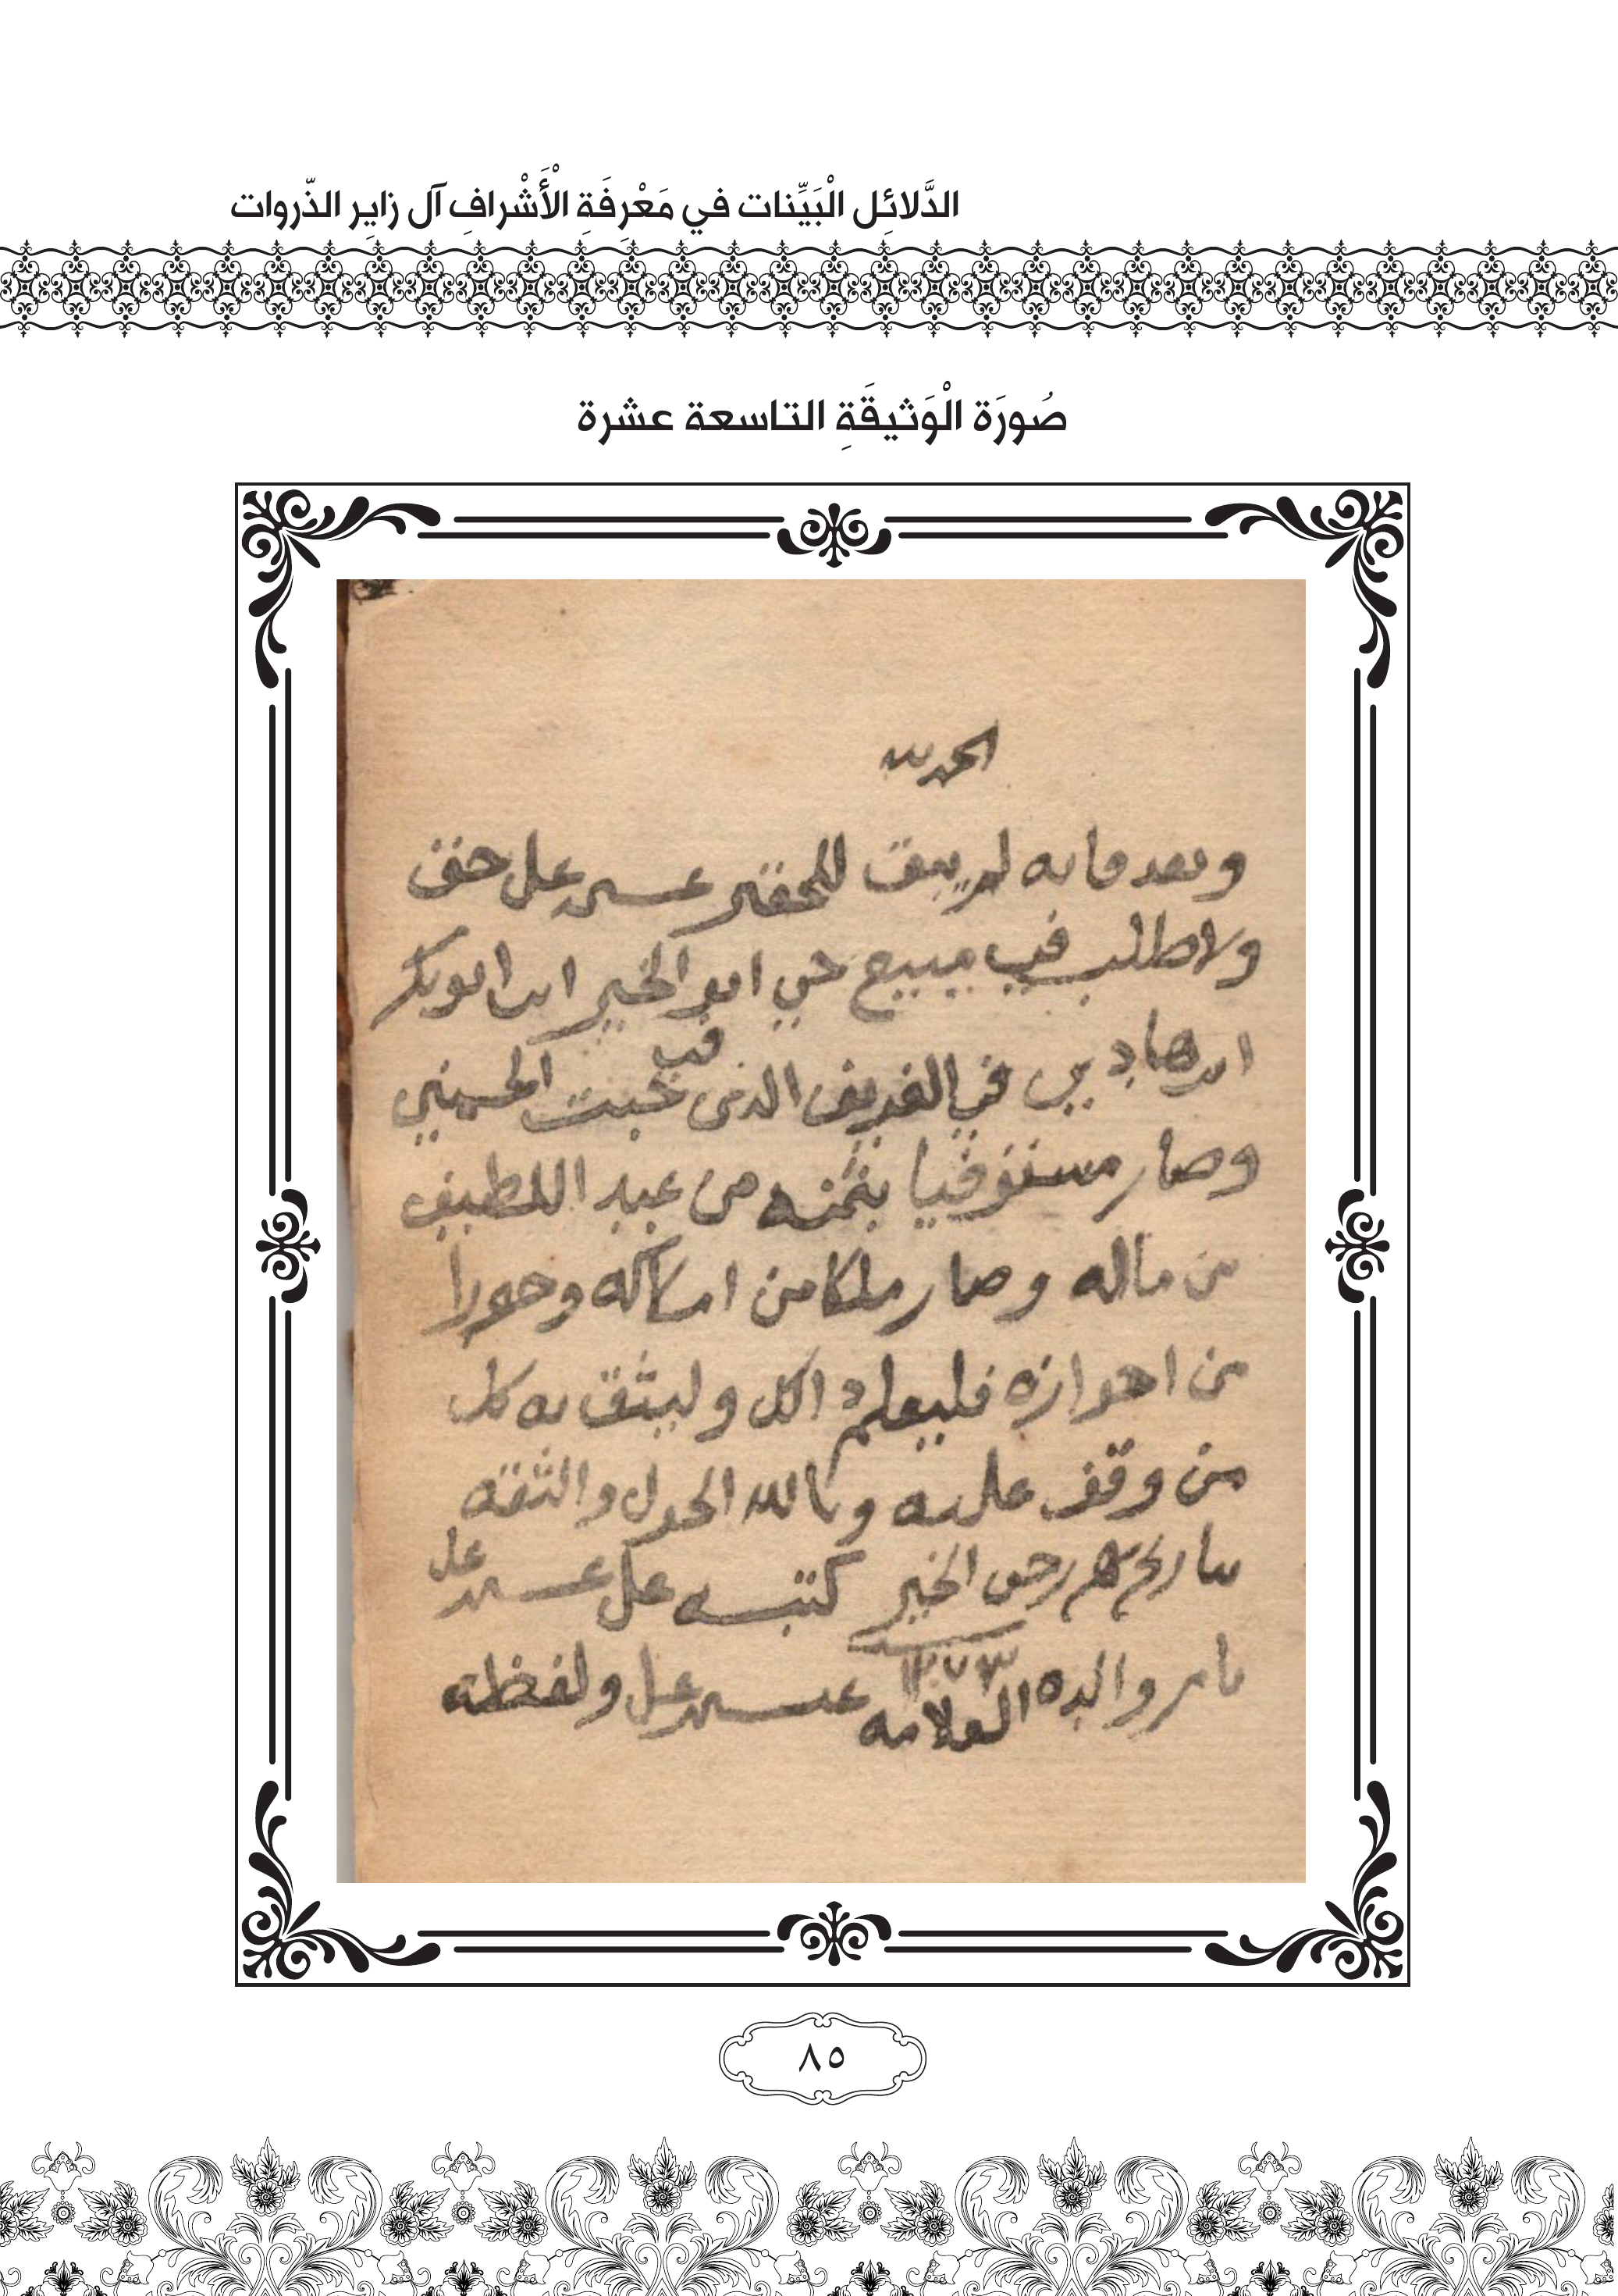 الدَّلائِل الْبَيِّنات في مَعْرِفَةِ الْأَشْرافِ آل زايِر الذّروات
صُورَة الْوَثيقَةِ التاسعة عشرة
الحمد لله
وبعد فانه لم يبق للحقير عسى علي حق
ولا طلب في مبيع حي ابو الخير ابن ابوبكر
ابن هادي في الغريف الذي في خبت الحسيني
وصار مستوفيا بثمنه من عبد اللطيف
من ماله وصار ملكا من املاكه وحوزا
من احوازه فليعلم ذا الكل وليثق به كل
من وقف عليه وبالله الحول والثقه
بتاريخ رجب الخير كتبه علي علي
١٢٧٣
بامر والده العلامه علي ولفظه
٨٥